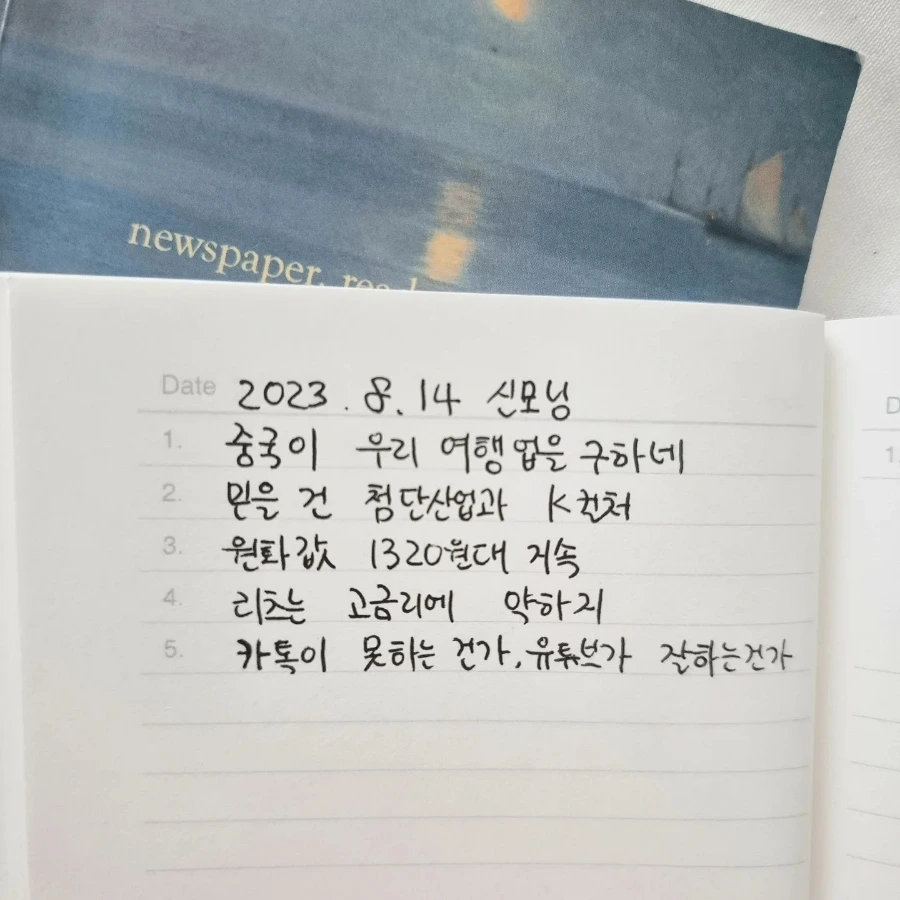 newspaper.
Date 2023.8.14 신모닝
1. 중국이 우리 여행업을 구하네
2. 믿을 건 첨단산업과 K컬처
3. 원화값 1320원대 저속
4. 리츠는 고금리에 약하지
5. 카톡이 못하는 건가, 유튜브가 잘하는건가
D
1.